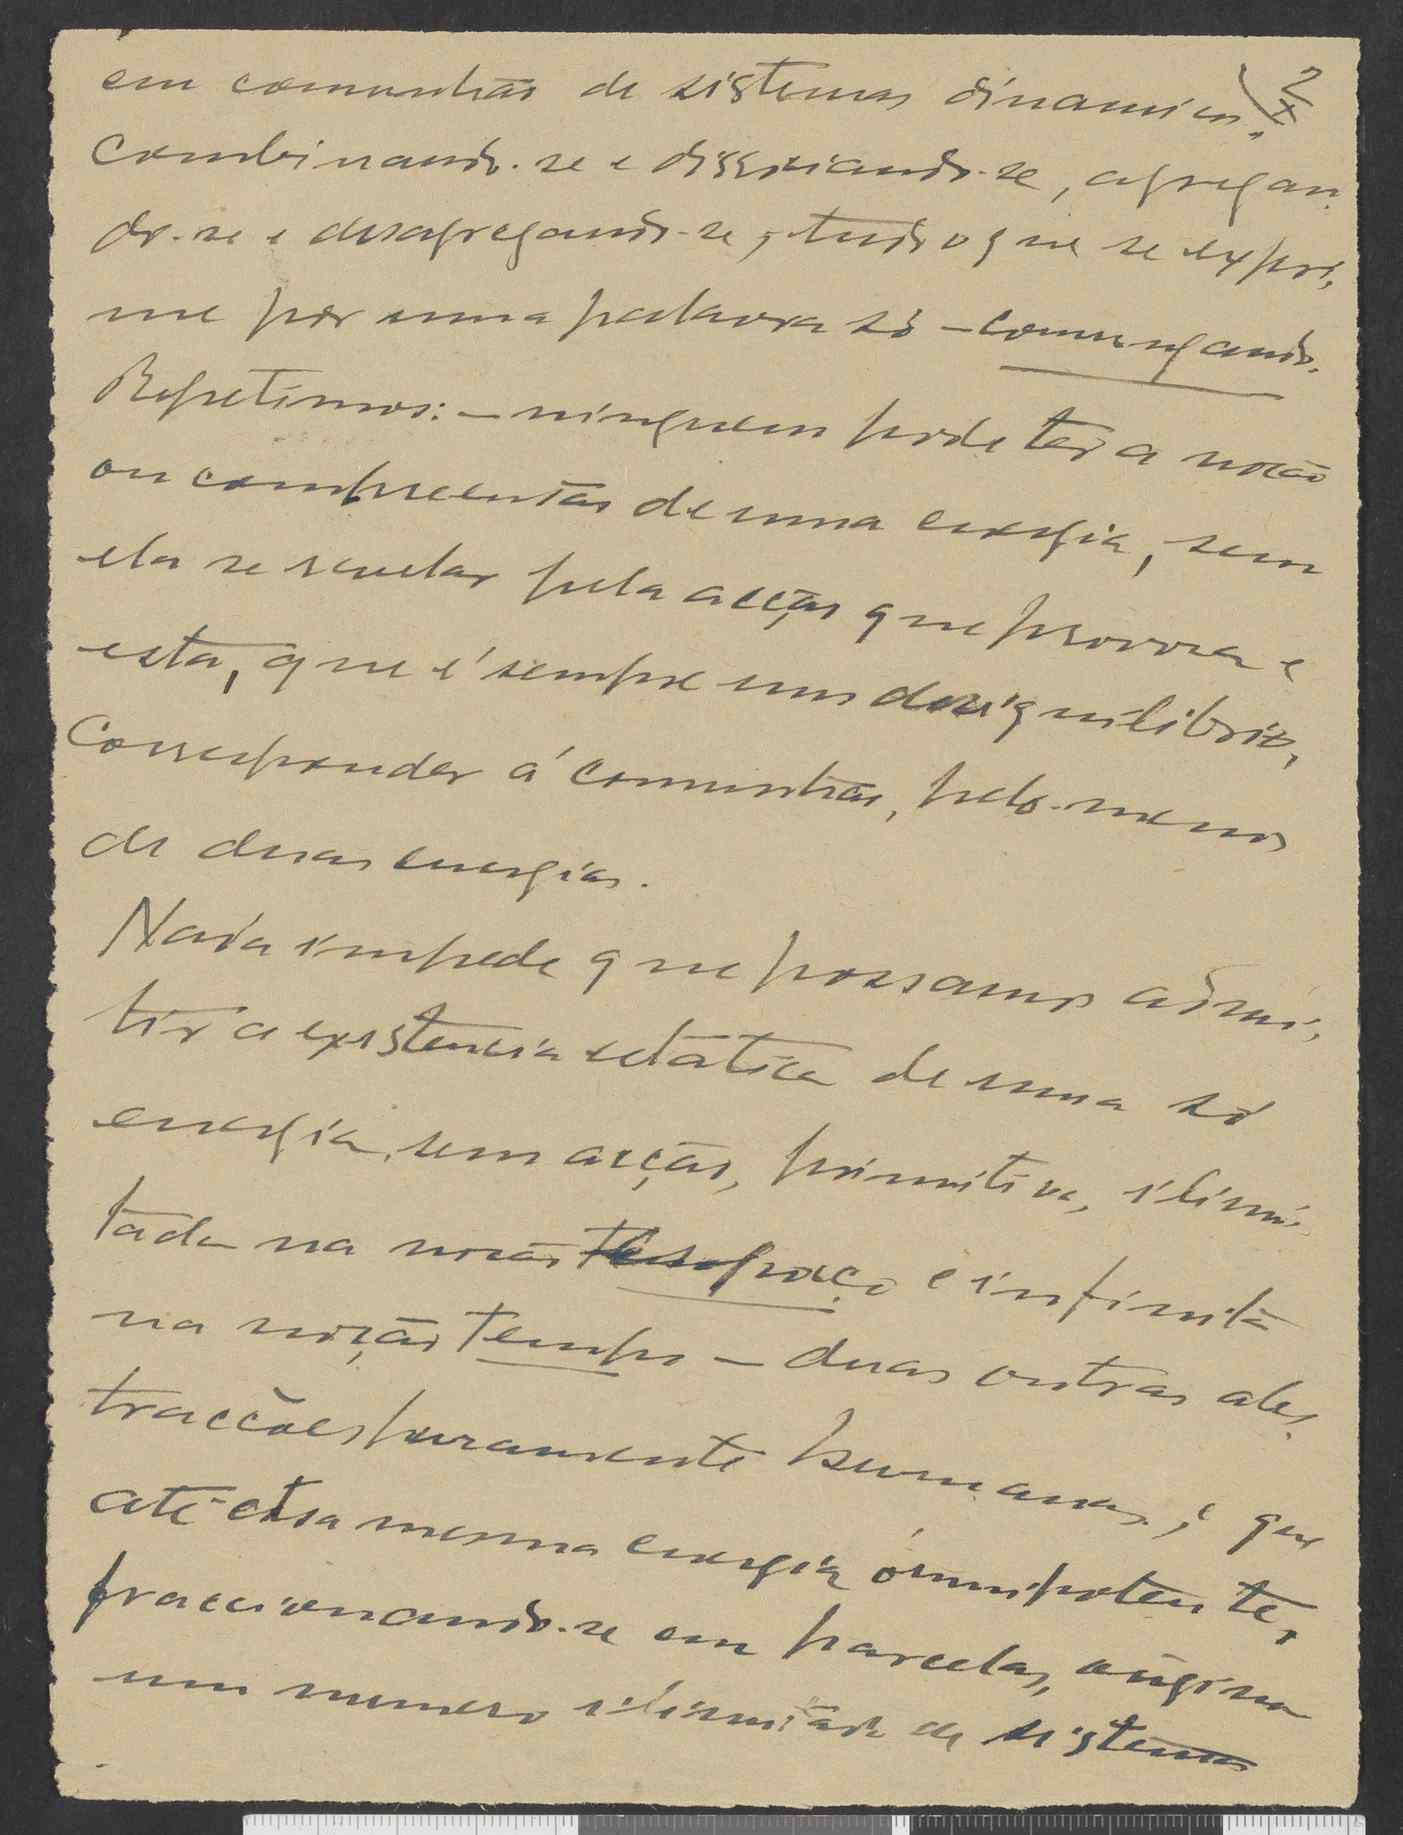 2
em comunhão de sistemas dinamicos,
combinando-se e dissociando-se, agregan-
do-se e desagregando-se, tudo o que se expri-
me por uma palavra só – comungando.
Repetimos: – ninguem pode ter a noção
ou compreensão de uma energia, sem
ela se revelar pela acção que provoca e
esta, que é sempre um desiquilibrio,
corresponder á comunhão, pelo menos
de duas energias.
Nada impede que possamos admi-
tir a existencia estática de uma só
energia, sem acção, primitiva, ilimi-
tada na noção espaço e infinita
na noção tempo – duas outras abs-
tracções puramente humanas, e que
até essa mesma energia ómnipotente,
fraccionando-se em parcelas, origina
um numero ilimitado de sistemas